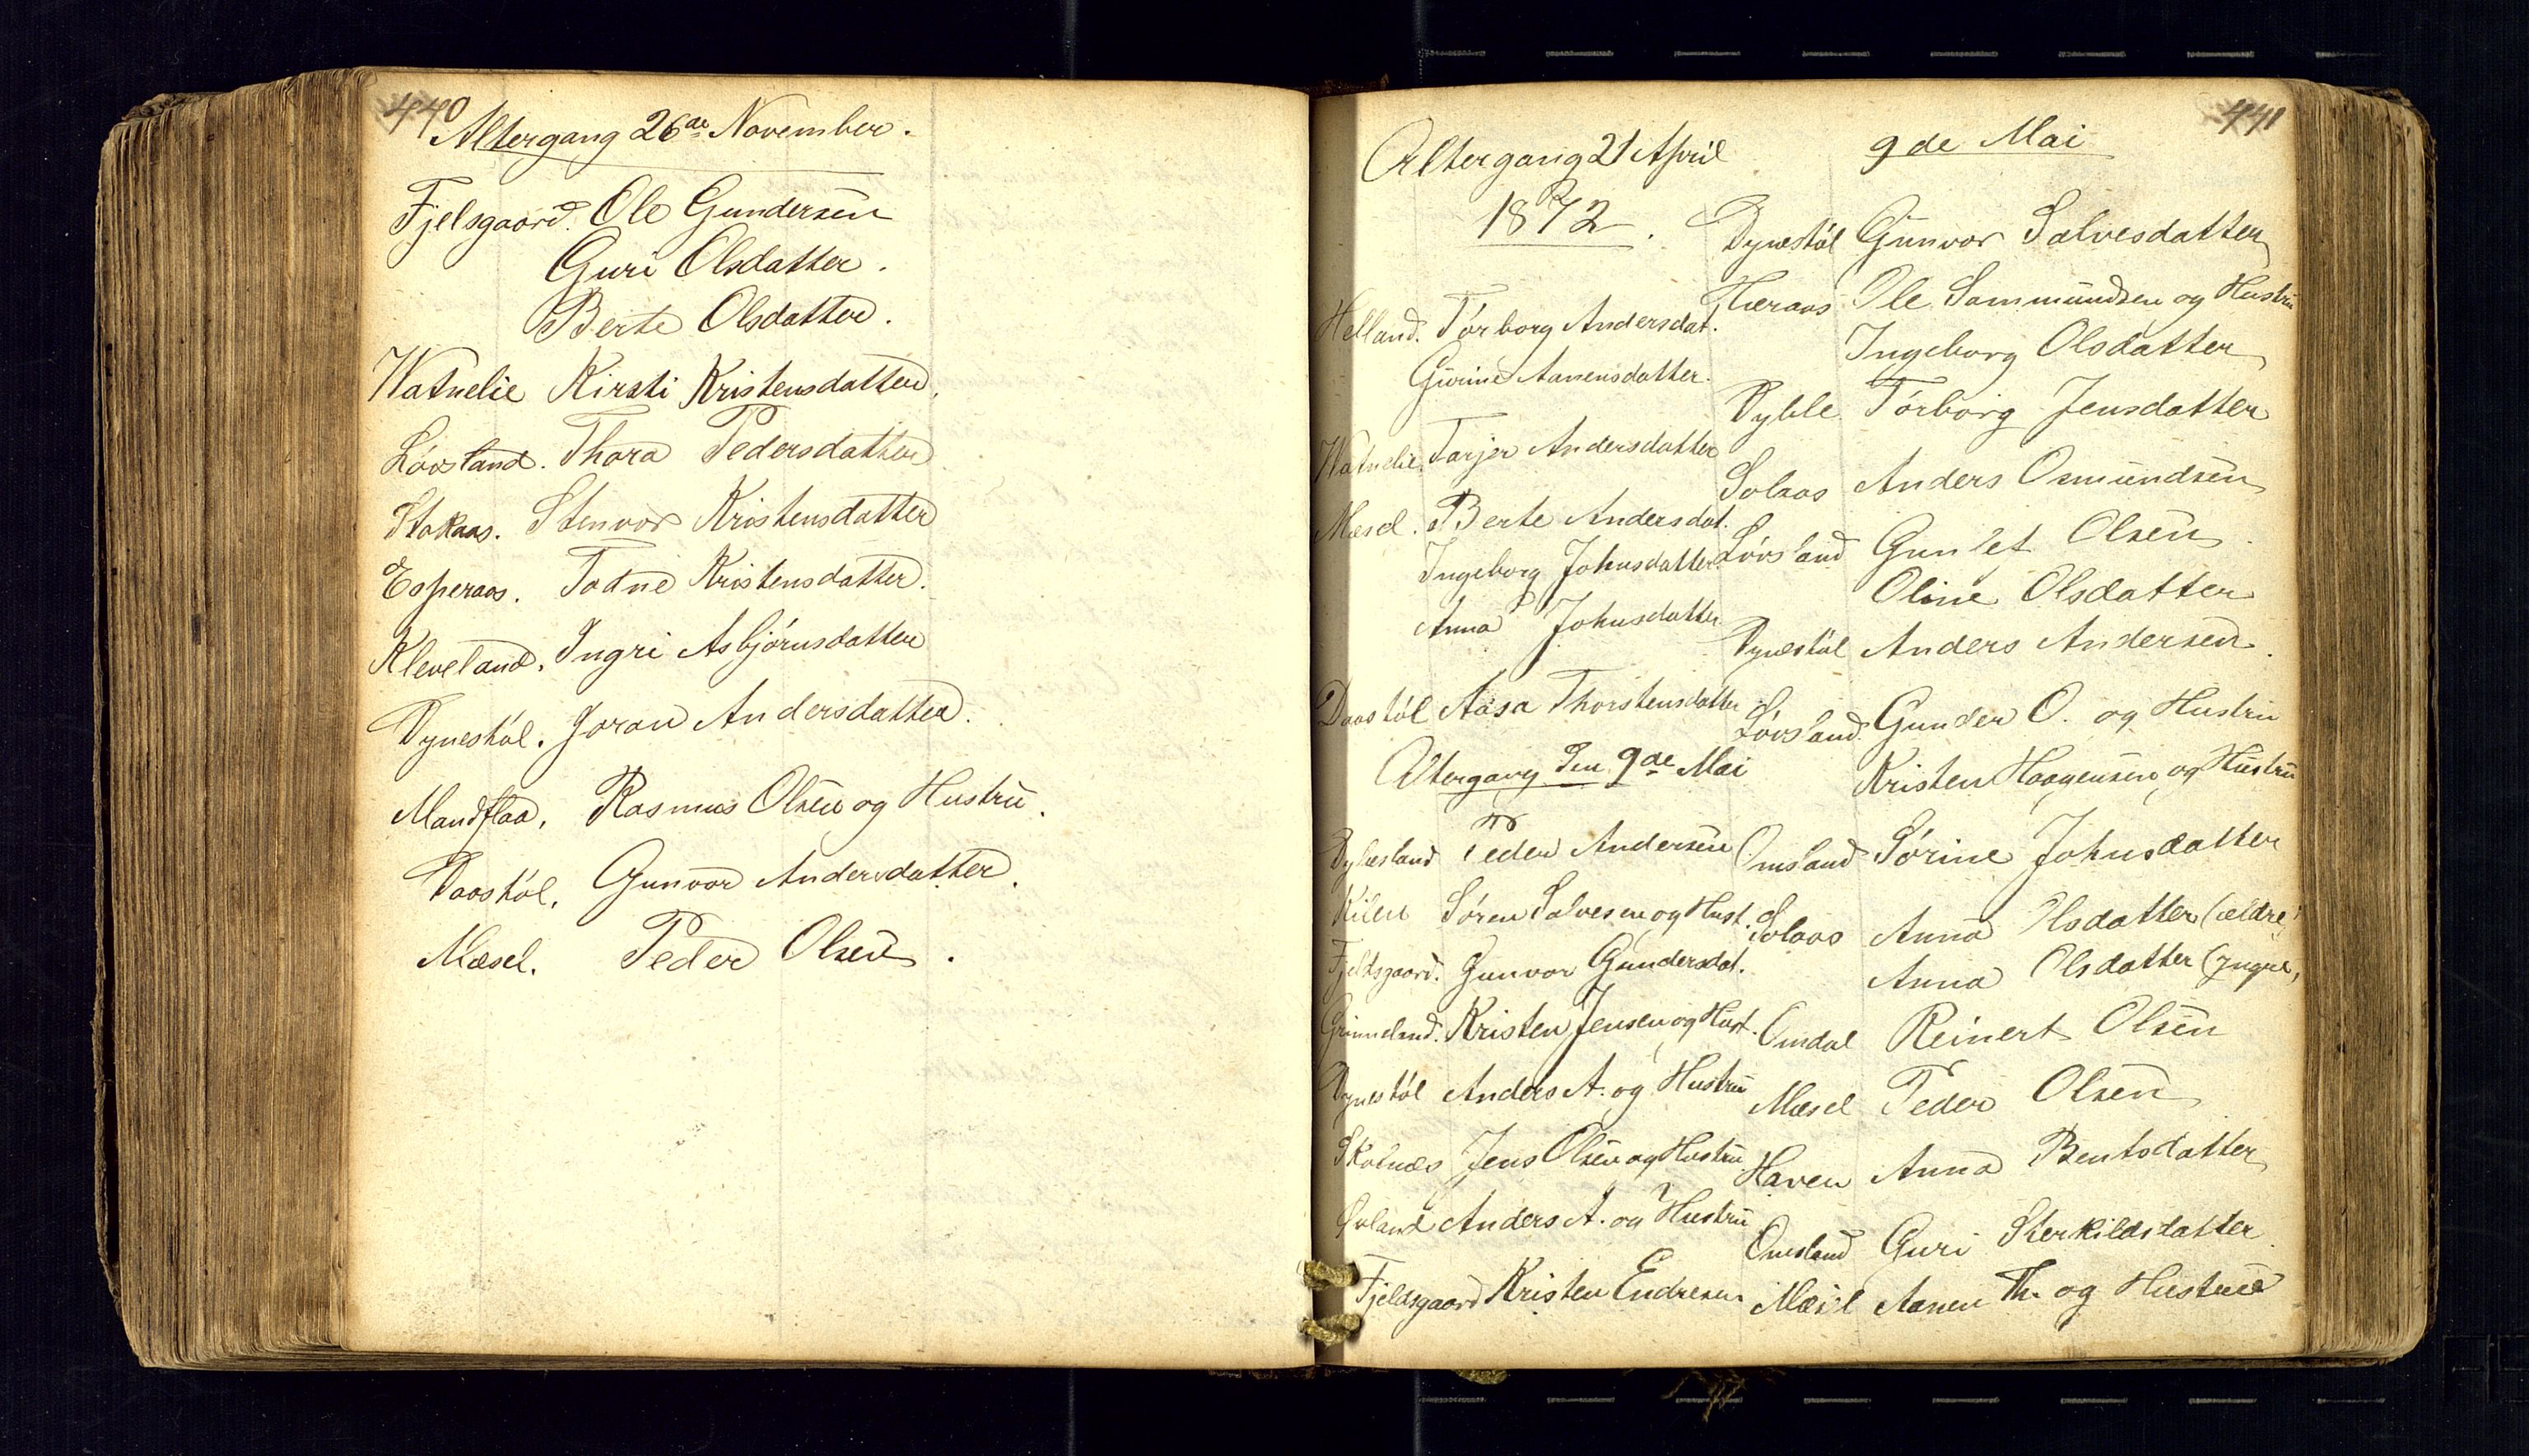 440
Altergang 26de November.
Fjelsgaard. Ole Gundersen
Guri Olsdatter.
Berte Olsdatter.
Watnelie Kirsti Kristensdatter.
Lövsland. Thora Pedersdatter
Stokaas. Stenvor Kristensdatter
Esperaas. Todne Kristensdatter.
Kleveland. Ingri Asbjörnsdatter
Dynestöl. Joran Andersdatter.
Mandflaa. Rasmus Olsen og Hustru.
Daastöl. Gunvor Andersdatter.
Mæsel. Peder Olsen.
441
Altergang 21 April
1872.
Helland. Törborg Andersdat.
Gurine Aanensdatter.
Watnelie. Tarjer Andersdatter
Mæsel. Berte Andersdat.
Ingeborg Johnsdatter
Anna Johnsdatter
Daastöl Aasa Thorstensdatter
Altergang den 9de Mai
Peder Andersen
Kilen Sören Salvesen og Hust.
Fjeldsgaard. Gunvor Gundersdat.
Grimeland. Kristen Jensen og Hust.
Dynestöl Anders A. og Hustru
Skolnæs Jens Olsen og Hustru
Anders A. og Hustru
Fjeldsgaard Kristen Endresen
9de Mai
Dynestöl Gunvor Salvesdatter
Ole Sammundsen og Hustru
Ingeborg Olsdatter
Dyble Törborg Jensdatter
Solaas Anders Osmundsen
Lövsland Gunlef Olsen.
Oline Olsdatter
Dynestöl Anders Andersen.
Lövsland Gunder O. og Hustru
Kristen Haagensen og Hustru
Omsland Sörine Johnsdatter
Solaas Anna Olsdatter (ældre)
Anna Olsdatter (yngre)
Omdal Reinert Olsen
Mæsel Peder Olsen
Haven Anna Bentsdatter
Omsland Guri Sterkildsdatter.
Mæsel Aanen Th. og Hustru